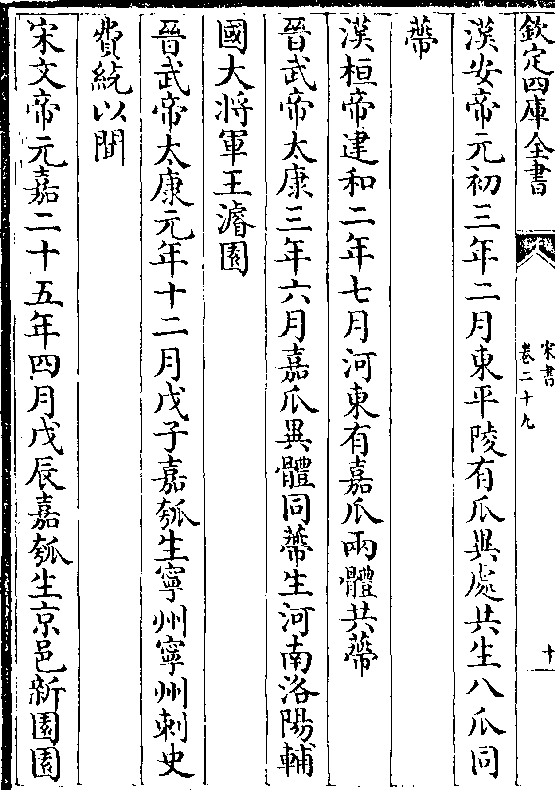 欽定四庫全書
宋書
卷二十九
十
漢安帝元初三年二月東平陵有瓜異處共生八瓜同
蔕
漢桓帝建和二年七月河東有嘉瓜兩體共蔕
晉武帝太康三年六月嘉瓜異體同蔕生河南洛陽輔
國大將軍王濬園
晉武帝太康元年十二月戊子嘉瓠生寧州寧州刺史
費統以聞
宋文帝元嘉二十五年四月戊辰嘉瓠生京邑新園園